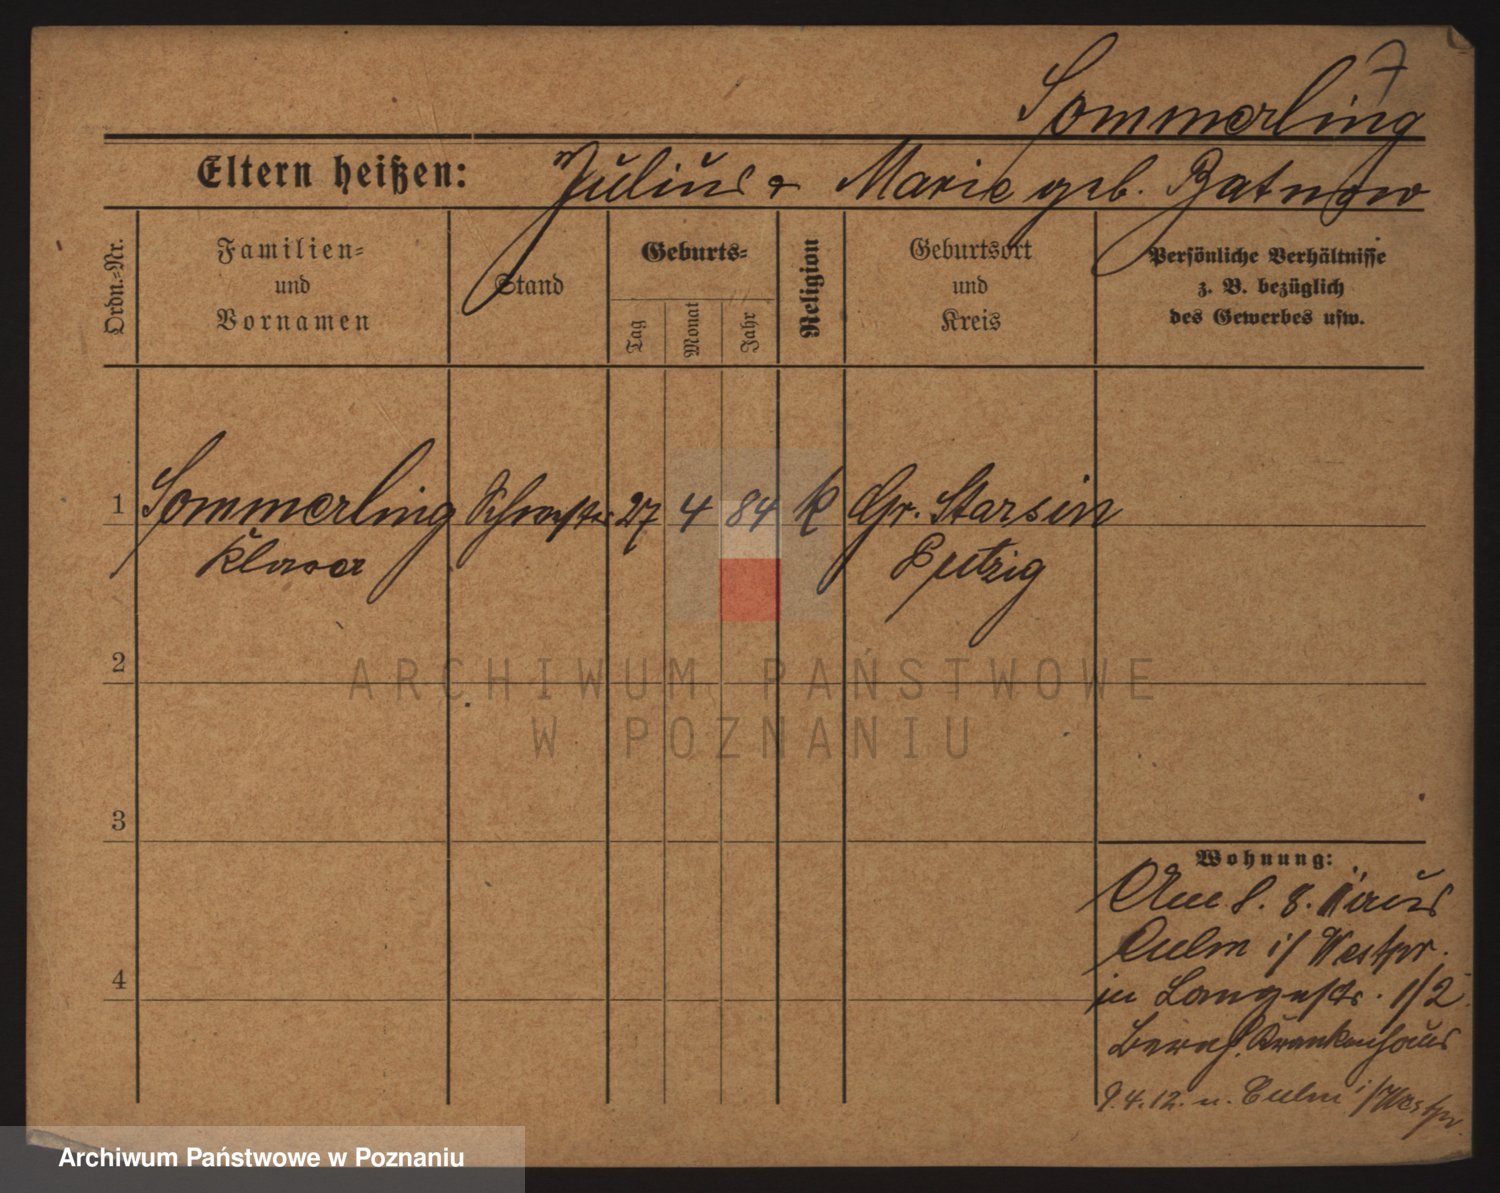 7
Sommerling
Eltern heißen: Julius & Marie geb. Batnow
Ordn.-Nr.
Familien-
und
Vornamen
Stand
Geburts-
Tag
Monat
Jahr
Religion
Geburtsort
und
Kreis
Persönliche Verhältnisse
z. B. bezüglich
des Gewerbes usw.
1 Sommerling Schwester 27 4 84 k Gr. Starsin
Klara Putzig
2
3
4
Wohnung:
Am 8. 8. 11 aus
Culm i/ Westpr.
in Langestr. 1/2
Krankenhaus
9.4.12. n. Culm i/Westpr.
ARCHIWUM PAŃSTWOWE
W POZNANIU
Archiwum Państwowe w Poznaniu